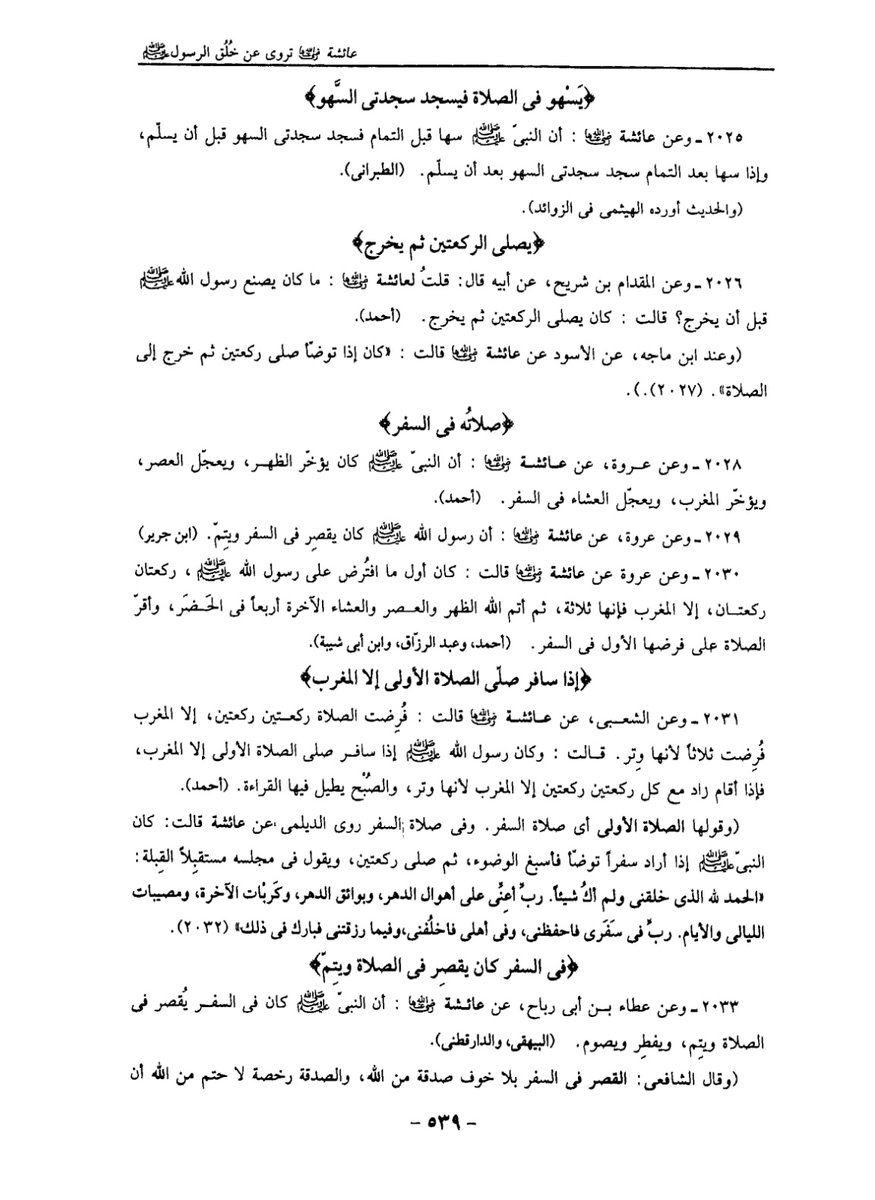 عائشة رضي الله عنها تروى عن خُلُق الرسول ﷺ
﴿يَسْهو فى الصلاة فيسجد سجدتى السَّهو﴾
٢٠٢٥ ـ وعن عائشة رضي الله عنها : أن النبىّ ﷺ سها قبل التمام فسجد سجدتى السهو قبل أن يسلّم،
وإذا سها بعد التمام سجد سجدتى السهو بعد أن يسلّم. (الطبرانى).
(والحديث أورده الهيثمى فى الزوائد).
﴿يصلى الركعتين ثم يخرج﴾
٢٠٢٦ ـ وعن المقدام بن شريح، عن أبيه قال: قلتُ لعائشة رضي الله عنها : ما كان يصنع رسول الله ﷺ
قبل أن يخرج؟ قالت : كان يصلى الركعتين ثم يخرج. (أحمد).
(وعند ابن ماجه، عن الأسود عن عائشة رضي الله عنها قالت : «كان إذا توضّأ صلى ركعتين ثم خرج إلى
الصلاة». (٢٠٢٧).).
﴿صلاتُه فى السفر﴾
٢٠٢٨ ـ وعن عروة، عن عائشة رضي الله عنها : أن النبىّ ﷺ كان يؤخّر الظهر، ويعجّل العصر،
ويؤخّر المغرب، ويعجّل العشاء فى السفر. (أحمد).
٢٠٢٩ ـ وعن عروة، عن عائشة رضي الله عنها : أن رسول الله ﷺ كان يقصِر فى السفر ويتمّ. (ابن جرير)
٢٠٣٠ ـ وعن عروة عن عائشة رضي الله عنها قالت : كان أول ما افتُرض على رسول الله ﷺ ، ركعتان
ركعتان، إلا المغرب فإنها ثلاثة، ثم أتم الله الظهر والعصر والعشاء الآخرة أربعاً فى الحَضَر، وأقرّ
الصلاة على فرضها الأول فى السفر. (أحمد، وعبد الرزّاق، وابن أبى شيبة).
﴿إذا سافر صلّى الصلاة الأولى إلا المغرب﴾
٢٠٣١ ـ وعن الشعبى، عن عائشة رضي الله عنها قالت : فُرِضت الصلاة ركعتين ركعتين، إلا المغرب
فُرِضت ثلاثاً لأنها وِتر. قالت : وكان رسول الله ﷺ إذا سافر صلى الصلاة الأولى إلا المغرب،
فإذا أقام زاد مع كل ركعتين ركعتين إلا المغرب لأنها وتر، والصُبْح يطيل فيها القراءة. (أحمد).
(وقولها الصلاة الأولى أى صلاة السفر. وفى صلاة السفر روى الديلمى عن عائشة قالت: كان
النبىّ ﷺ إذا أراد سفراً توضّأ فأسبغ الوضوء، ثم صلى ركعتين، ويقول فى مجلسه مستقبِلاً القِبلة:
«الحمد لله الذى خلقنى ولم أكُ شيئاً. ربِّ أعنِّى على أهوال الدهر، وبوائق الدهر، وكَربْات الآخرة، ومصيبات
الليالى والأيام. ربِّ فى سَفَرى فاحفظنى، وفى أهلى فاخلُفنى، وفيما رزقتنى فبارك فى ذلك» (٢٠٣٢).
﴿فى السفر كان يقصِر فى الصلاة ويتمّ﴾
٢٠٣٣ ـ وعن عطاء بن أبى رباح، عن عائشة رضي الله عنها : أن النبىّ ﷺ كان فى السفر يُقصر فى
الصلاة ويتم، ويفطِر ويصوم. (البيهقى، والدارقطنى).
(وقال الشافعى: القصر فى السفر بلا خوف صدقة من الله، والصدقة رخصة لا حتم من الله أن
- ٥٣٩ -